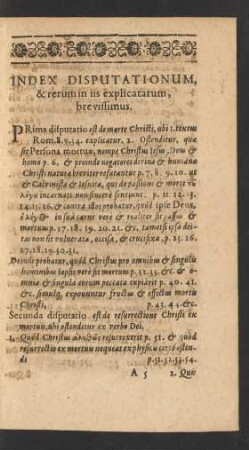 INDEX DISPUTATIONUM,
& rerum in iis explicatarum,
brevissimus.
PRima disputatio est de morte Christi, ubi 1. textus
Rom. 8. v. 34. explicatur. 2. Ostenditur, quæ
sit Persona mortua, nempe Christus Iesus, Deus &
homo p. 6. & proinde negatores divinæ & humanæ
Christi naturæ breviter refutantur p. 7. 8. 9. 10. ut
& Calvinistæ & Iesuitæ, qui de passione & morte
λόγου incarnati non sincere sentiunt. 11. 12. 13.
14. 15. 16. & contra illos probatur, quod ipse Deus,
ὁ λόγος in suâ carne vere & realiter sit passus &
mortuus p. 17. 18. 19. 20. 21. &c. tametsi ipsa dei-
tas non sit vulnerata, occisa, & crucifixa, p. 25. 26.
27. 28. 29. 30. 31.
Deinde probatur, quòd Christus pro omnibus & singulis
hominibus lapsis vere sit mortuus p. 32. 33. &c. &
omnia & singula eorum peccata expiârit p. 40. 41.
&c. simulq; exponuntur fructus & effectus mortis
Christi, p. 43. 44. &c.
Secunda disputatio est de resurrectione Christi ex
mortuis, ubi ostenditur ex verbo Dei,
1. Quòd Christus resurrexerit p. 51. & quòd
resurrectio ex mortuis nequeat ex physicis certò osten-
di p. 51. 52. 53. 54.
A 5 2. Quis